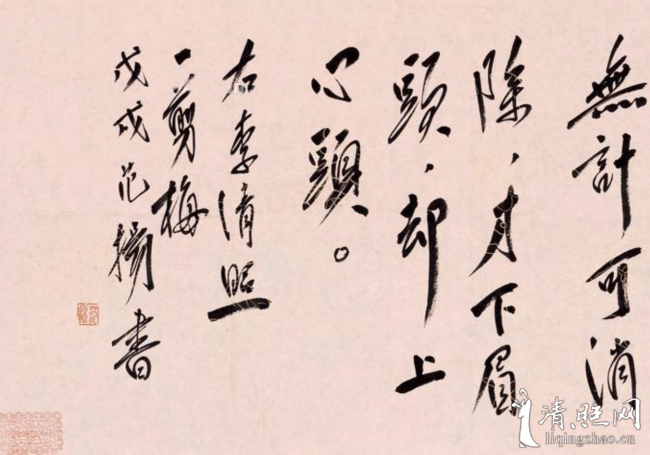 無計可消
除，才下眉
頭，却上
心頭。
右李清照
一剪梅
戊戌范揚書
清照网
liqingzhao.cn